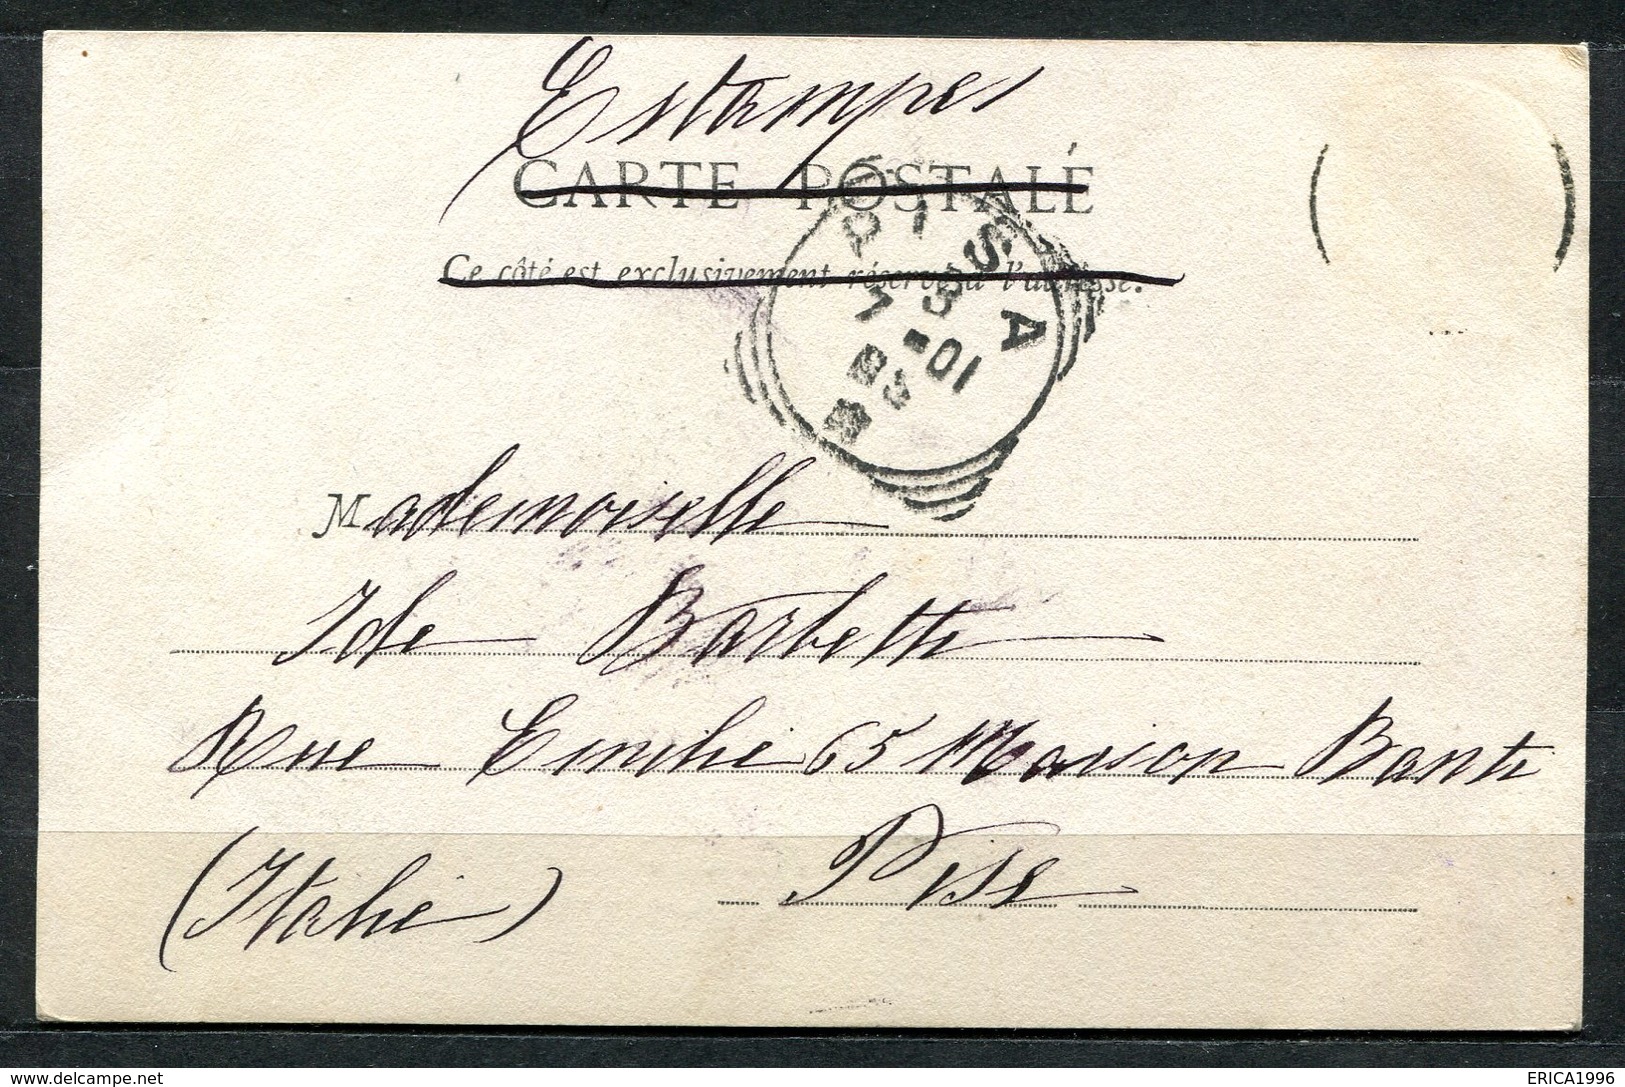 Estampes
CARTE POSTALE
Ce côté est exclusivement réservé à l'adresse.
PISA
7 3-01
Mademoiselle
Ide Barbette
Rue Emilie 65 Maison Bante
Pise
(Italie)
ERICA1996